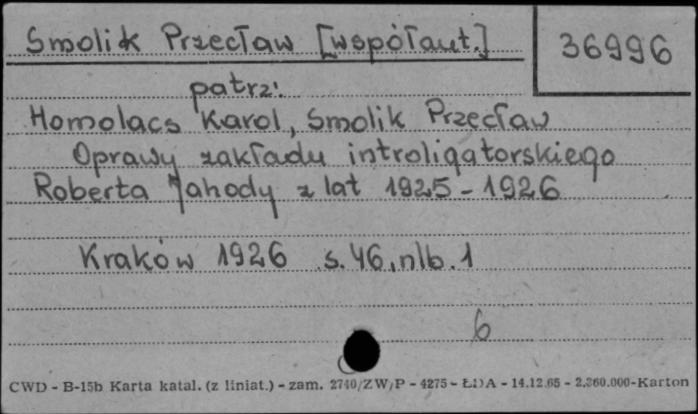 Smolik Przecław [współaut.]
36996
patrz:
Homolacs Karol, Smolik Przecław
Oprawy zakładu introligatorskiego
Roberta Jahody z lat 1925-1926
Kraków 1926 s. 46, nlb. 1
6
CWD - B-15b Karta katal. (z liniat.) - zam. 2740/ZW/P - 4275 - ŁDA - 14.12.65 - 2.360.000-Karton